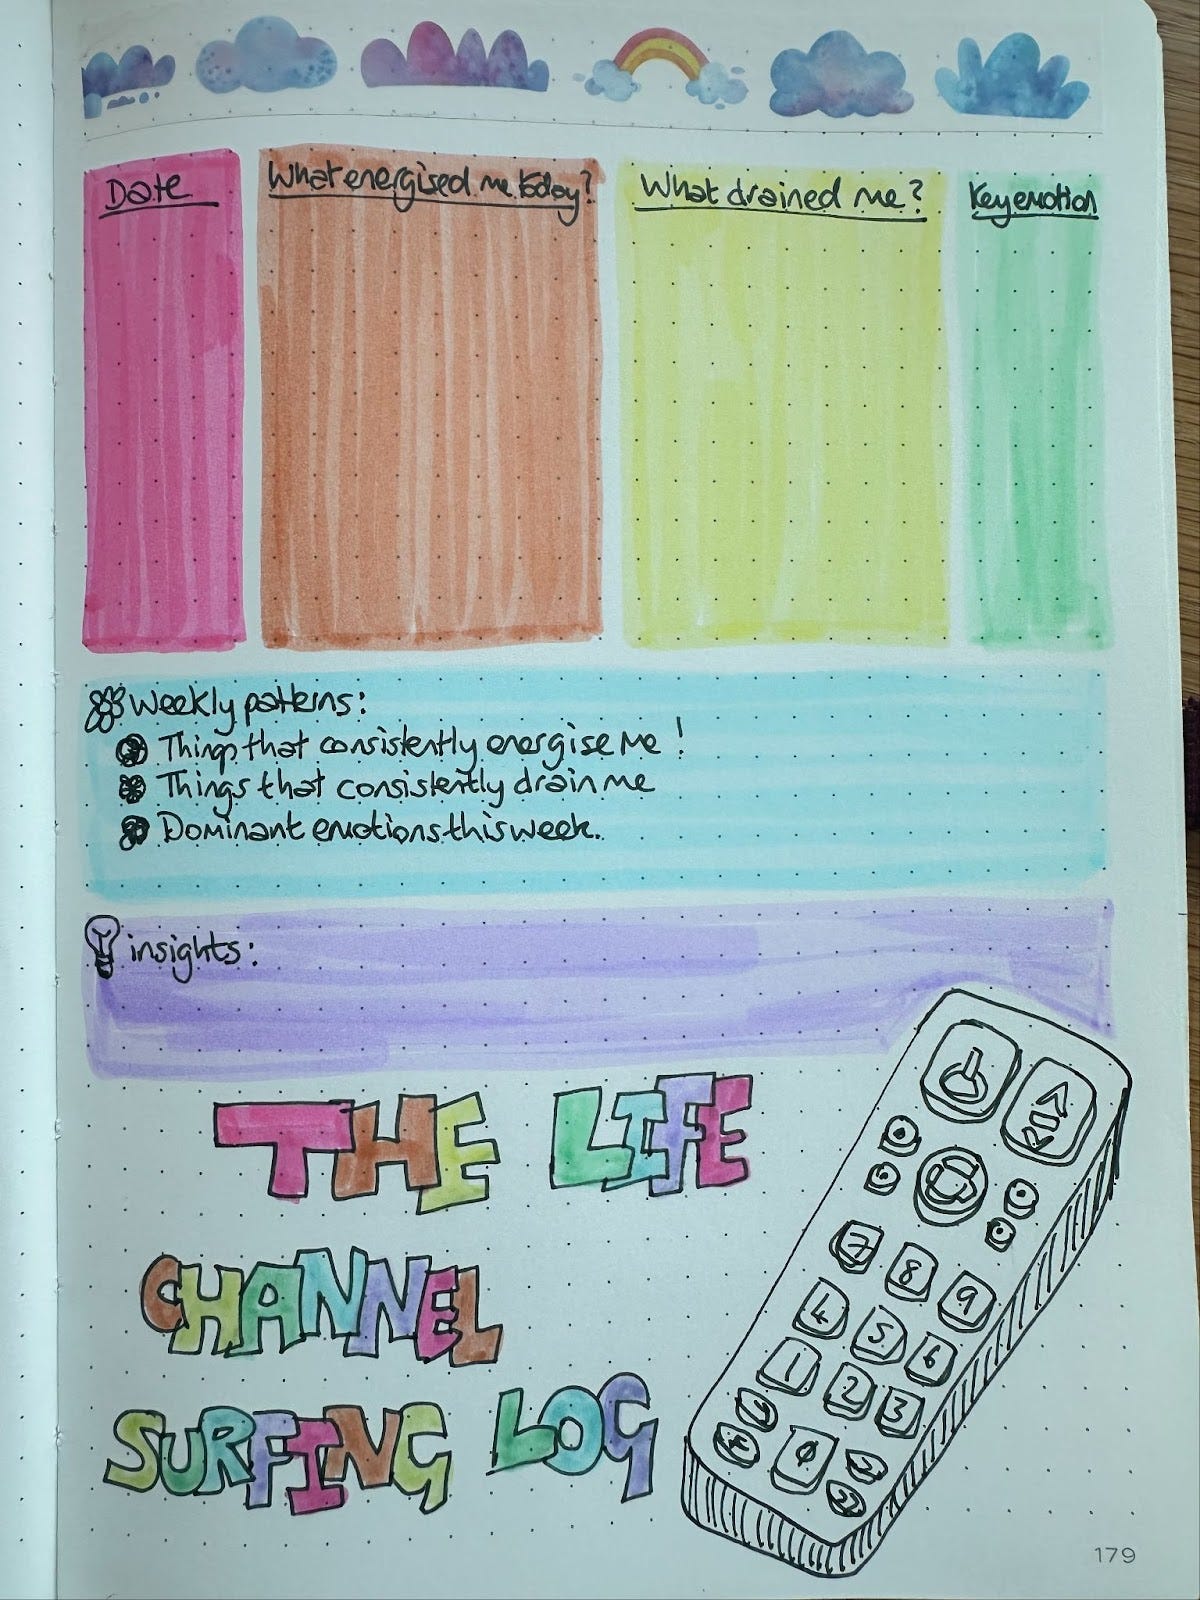 Date
What energised me today?
What drained me?
Key emotion
Weekly patterns:
Things that consistently energise me!
Things that consistently drain me
Dominant emotions this week.
insights:
THE LIFE
CHANNEL
SURFING LOG
7 8 9
4 5 6
1 2 3
0
179